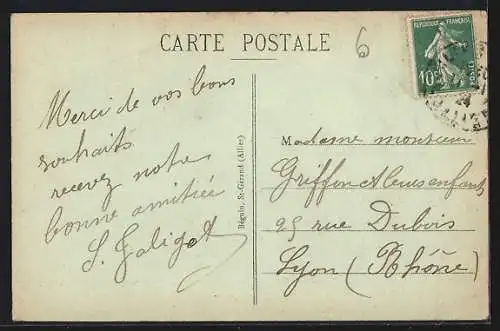 CARTE POSTALE
6
REPUBLIQUE FRANÇAISE
10c
POSTES
Merci de vos bons
souhaits
recevez notre
bonne amitiée
S. Galigot
Béguin, St-Gérand (Allier)
Madame monsieur
Griffon et leurs enfants
25 rue Dubois
Lyon (Rhône)